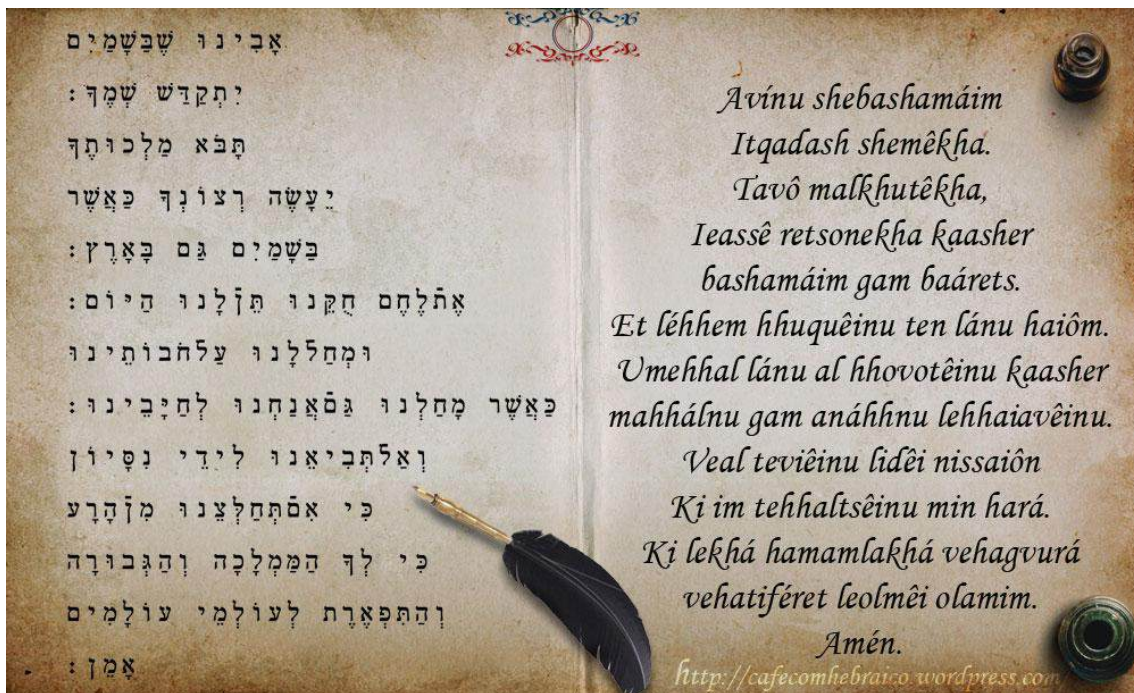 אָבִינוּ שֶׁבַּשָּׁמַיִם
יִתְקַדַּשׁ שְׁמֶךָ:
תָּבֹא מַלְכוּתֶךָ
יֵעָשֶׂה רְצוֹנְךָ כַּאֲשֶׁר
בַּשָּׁמַיִם גַּם בָּאָרֶץ:
אֶת־לֶחֶם חֻקֵּנוּ תֵּן־לָנוּ הַיּוֹם:
וּמְחַל־לָנוּ עַל־חֹבוֹתֵינוּ
כַּאֲשֶׁר מָחַלְנוּ גַּם־אֲנַחְנוּ לְחַיָּבֵינוּ:
וְאַל־תְּבִיאֵנוּ לִידֵי נִסָּיוֹן
כִּי אִם־תְּחַלְּצֵנוּ מִן־הָרָע
כִּי לְךָ הַמַּמְלָכָה וְהַגְּבוּרָה
וְהַתִּפְאֶרֶת לְעוֹלְמֵי עוֹלָמִים
אָמֵן:
Avínu shebashamáim
Itqadash shemêkha.
Tavô malkhutêkha,
Ieassê retsonekha kaasher
bashamáim gam baárets.
Et léhhem hhuquêinu ten lánu haiôm.
Umehhal lánu al hhovotêinu kaasher
mahhálnu gam anáhhnu lehhaiavêinu.
Veal teviêinu lidêi nissaiôn
Ki im tehhaltsêinu min hará.
Ki lekhá hamamlakhá vehagvurá
vehatiféret leolmêi olamim.
Amén.
http://cafecomhebraico.wordpress.com/